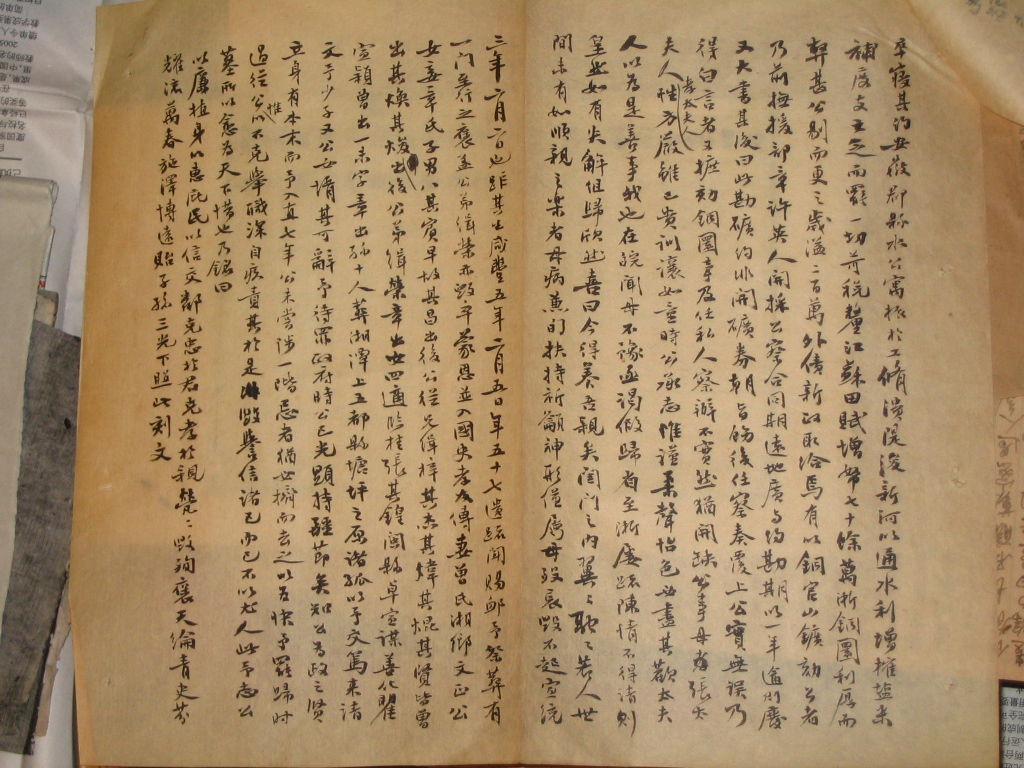 卒寢其約安徽郡縣水公寓振於工脩潰隄浚新河以通水利增榷鹽米
補度支立乏而罷一切苛稅釐江蘇田賦增幣七十餘萬浙銅圜利厚而
弊甚公剔而更之歲溢二百萬外債新政取給焉有以銅官山鑛劾公者
乃前撫援部章許英人開採公察合同期遠地廣与約勘期以一年逾則廢
又大書其後曰此勘礦約非開礦券朝旨飭後任察奏覆上公實無誤乃
得白言者又摭劾銅圜事及任私人察辦不實然猶開缺公事母孝張太
夫人孝太夫人性方嚴雖已貴訓讓如童時公承志惟謹柔聲怡色必盡其歡太夫
人以為是善事我也在皖聞母不豫亟謁假歸省至浙屢疏陳情不得請則
皇皇如有失解組歸欣然喜曰今得養吾親矣閨門之內翼〻耽〻若人世
間未有如順親之樂者母病熏灼扶持祈籲神形值焉母歿哀毀不起宣統
三年二月一日也距其生咸豐五年二月五日年五十七遺疏聞賜卹予祭葬有
一门孝行之褒盖公弟緝榮亦毀卒蒙恩並入國史孝友傳妻曾氏湘鄉文正公
女妾章氏子男八其賓早故其昌出後公從兄緝梓其杰其煒其焜其賢皆曾
出其煥其焌出後公弟緝榮章出女四適臨桂張其鍠閩縣卓宣謀善化瞿
宣穎曾出一未字章出孫十人葬湘潭上五都縣塘坪之原諸孤以予交篤來請
文予少子又公女壻其可辭予待罪政府時公已光顯持疆節矣知公為政之賢
立身有本末而予入直七年公未嘗陟一階忌者猶必擠而去之以為快予罷歸時
過從公惟以不克舉職深自疚責其於是非毀譽信諸己而已不以尤人此予志公
墓所以愈為天下惜也乃銘曰
以廉植身以惠庇民以信交鄰克忠於君克孝於親煢〻毀殉褒天綸青史芬
耀流萬春施澤博遠貽子孫三光下照此刻文